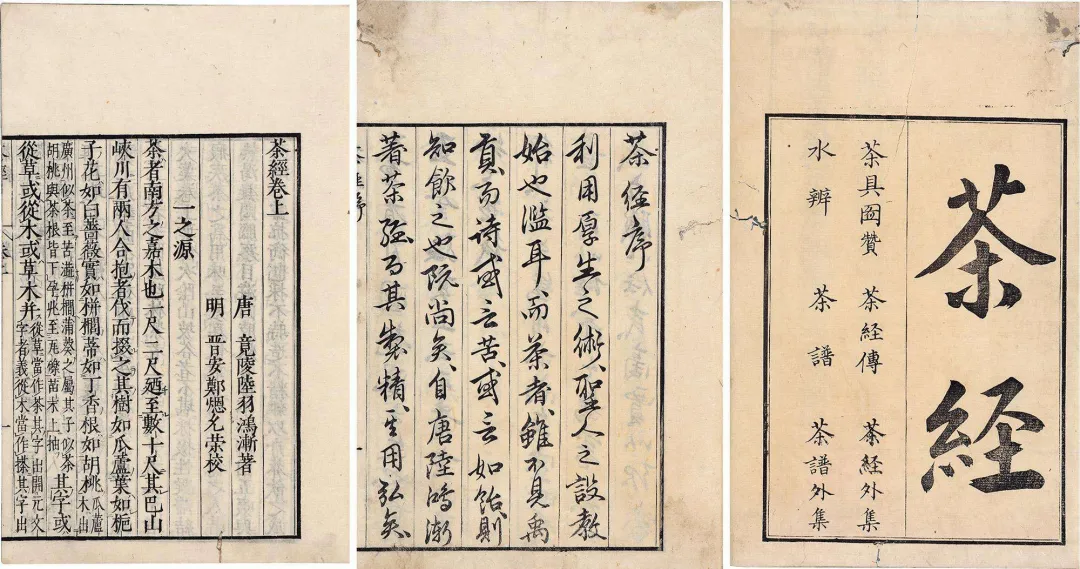 茶経
茶具啚贊 茶経傳 茶経外集
水辨 茶譜 茶譜外集
茶経序
利用厚生之術聖人之設教
始也濫耳而茶者雖不見禹
貢而诗或云苦或云如飴則
知飲之也阮尚矣自唐陸鴻漸
著茶経而其製精其用弘矣
茶經卷上
一之源
唐 竟陵陸羽鴻漸著
明 晉安鄭煾允榮校
茶者南方之嘉木也一尺二尺廼至數十尺其巴山
峽川有兩人合抱者伐而掇之其樹如瓜蘆葉如梔
子花如白薔薇實如栟櫚蒂如丁香根如胡桃瓜蘆木出
廣州似茶至苦澁栟櫚蒲葵之屬其子似茶
胡桃與茶根皆下孕兆至瓦礫苗木上抽其字或
從草或從木或草木并從草當作茶其字出開元文
字者義從木當作搽其字出